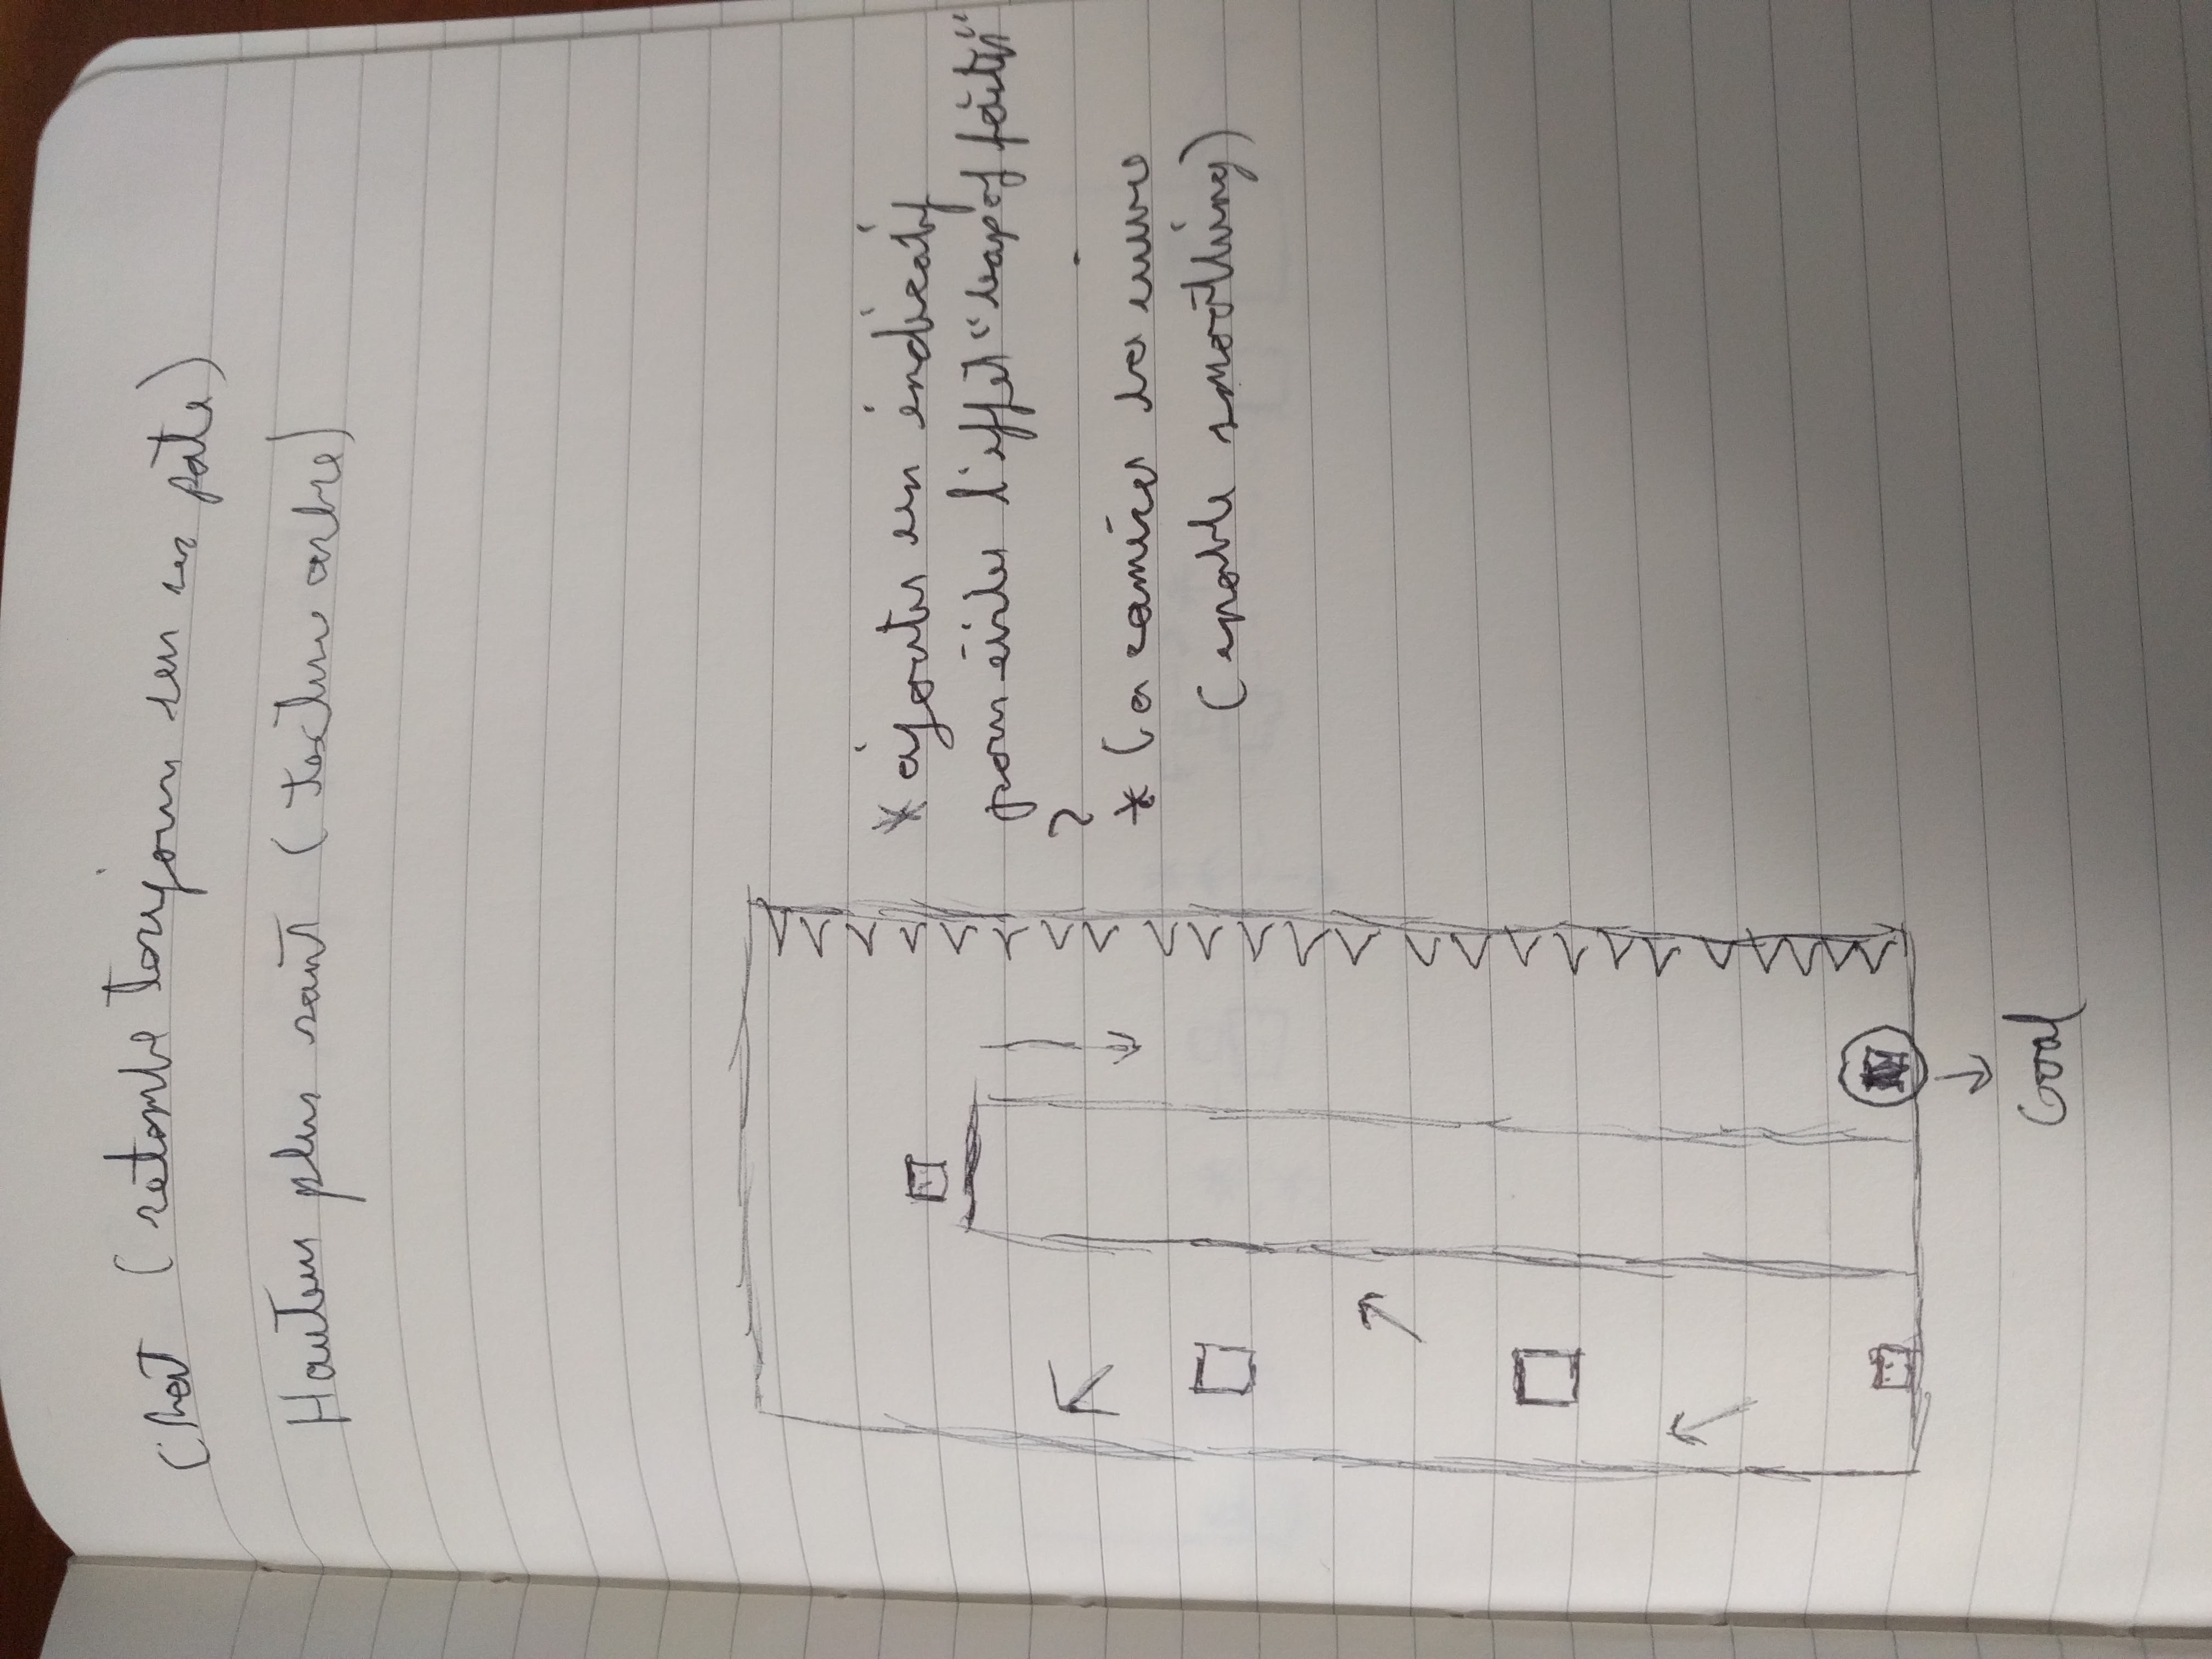 Chat (retombe toujours sur ses pate)
Hauteur plus saut (texture arbre)
* ajouter un indicatif
pour éviter l'effet "leap of faith"
?
* La caméra les murs
(enable smoothing)
Goal